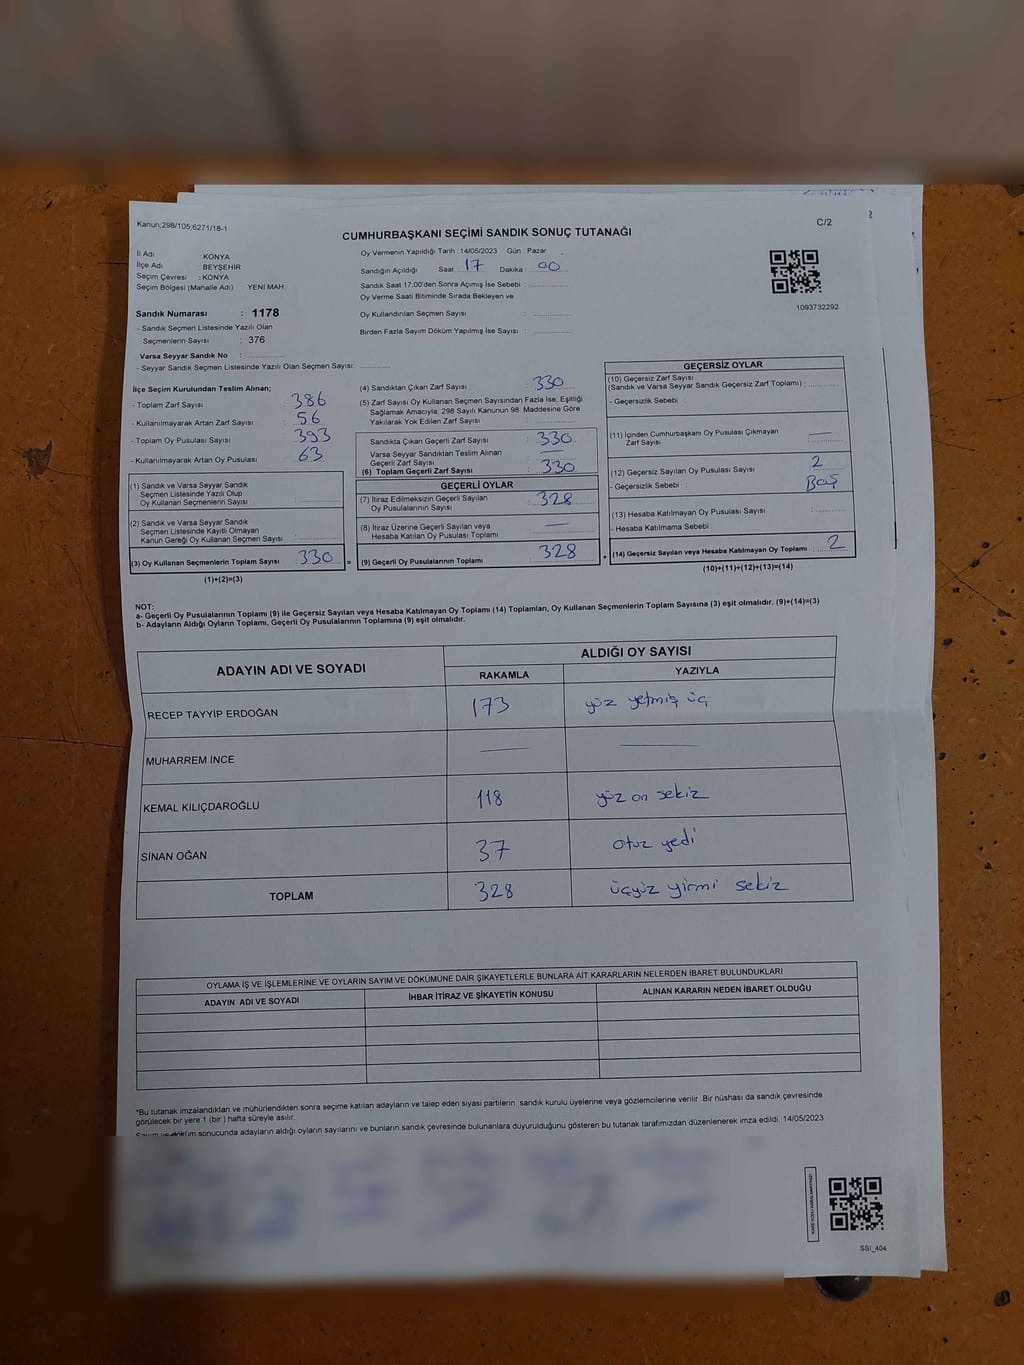 Kanun;298/105;6271/18-1
C/2
CUMHURBAŞKANI SEÇİMİ SANDIK SONUÇ TUTANAĞI
İl Adı : KONYA
İlçe Adı : BEYŞEHİR
Seçim Çevresi : KONYA
Seçim Bölgesi (Mahalle Adı) YENİ MAH.
Sandık Numarası : 1178
- Sandık Seçmen Listesinde Yazılı Olan
Seçmenlerin Sayısı : 376
Varsa Seyyar Sandık No :
- Seyyar Sandık Seçmen Listesinde Yazılı Olan Seçmen Sayısı:
Oy Vermenin Yapıldığı Tarih :14/05/2023 Gün : Pazar
Sandığın Açıldığı Saat : 17 Dakika : 00
Sandık Saat 17.00'den Sonra Açımış İse Sebebi :
Oy Verme Saati Bitiminde Sırada Bekleyen ve
Oy Kullandırılan Seçmen Sayısı :
Birden Fazla Sayım Döküm Yapılmış İse Sayısı :
1093732292
İlçe Seçim Kurulundan Teslim Alınan;
- Toplam Zarf Sayısı : 386
- Kullanılmayarak Artan Zarf Sayısı : 56
- Toplam Oy Pusulası Sayısı : 393
- Kullanılmayarak Artan Oy Pusulası : 63
(1) Sandık ve Varsa Seyyar Sandık
Seçmen Listesinde Yazılı Olup
Oy Kullanan Seçmenlerin Sayısı :
(2) Sandık ve Varsa Seyyar Sandık
Seçmen Listesinde Kayıtlı Olmayan
Kanun Gereği Oy Kullanan Seçmen Sayısı :
(3) Oy Kullanan Seçmenlerin Toplam Sayısı : 330
(1)+(2)=(3)
(4) Sandıktan Çıkan Zarf Sayısı : 330
(5) Zarf Sayısı Oy Kullanan Seçmen Sayısından Fazla İse, Eşitliği
Sağlamak Amacıyla; 298 Sayılı Kanunun 98. Maddesine Göre
Yakılarak Yok Edilen Zarf Sayısı :
Sandıkta Çıkan Geçerli Zarf Sayısı : 330
Varsa Seyyar Sandıktan Teslim Alınan
Geçerli Zarf Sayısı : —
(6) Toplam Geçerli Zarf Sayısı : 330
GEÇERLİ OYLAR
(7) İtiraz Edilmeksizin Geçerli Sayılan
Oy Pusulalarının Sayısı : 328
(8) İtiraz Üzerine Geçerli Sayılan veya
Hesaba Katılan Oy Pusulası Toplamı : —
= (9) Geçerli Oy Pusulalarının Toplamı : 328
GEÇERSİZ OYLAR
(10) Geçersiz Zarf Sayısı
(Sandık ve Varsa Seyyar Sandık Geçersiz Zarf Toplamı) :
- Geçersizlik Sebebi :
(11) İçinden Cumhurbaşkanı Oy Pusulası Çıkmayan
Zarf Sayısı : —
(12) Geçersiz Sayılan Oy Pusulası Sayısı : 2
- Geçersizlik Sebebi : BOŞ
(13) Hesaba Katılmayan Oy Pusulası Sayısı :
- Hesaba Katılmama Sebebi :
+ (14) Geçersiz Sayılan veya Hesaba Katılmayan Oy Toplamı : 2
(10)+(11)+(12)+(13)=(14)
NOT:
a- Geçerli Oy Pusulalarının Toplamı (9) ile Geçersiz Sayılan veya Hesaba Katılmayan Oy Toplamı (14) Toplamları, Oy Kullanan Seçmenlerin Toplam Sayısına (3) eşit olmalıdır. (9)+(14)=(3)
b- Adayların Aldığı Oyların Toplamı, Geçerli Oy Pusulalarının Toplamına (9) eşit olmalıdır.
ADAYIN ADI VE SOYADI
ALDIĞI OY SAYISI
RAKAMLA YAZIYLA
RECEP TAYYİP ERDOĞAN 173 yüz yetmiş üç
MUHARREM İNCE — —
KEMAL KILIÇDAROĞLU 118 yüz on sekiz
SİNAN OĞAN 37 otuz yedi
TOPLAM 328 üçyüz yirmi sekiz
OYLAMA İŞ VE İŞLEMLERİNE VE OYLARIN SAYIM VE DÖKÜMÜNE DAİR ŞİKAYETLERLE BUNLARA AİT KARARLARIN NELERDEN İBARET BULUNDUKLARI
ADAYIN ADI VE SOYADI İHBAR İTİRAZ VE ŞİKAYETİN KONUSU ALINAN KARARIN NEDEN İBARET OLDUĞU
*Bu tutanak imzalandıktan ve mühürlendikten sonra seçime katılan adayların ve talep eden siyasi partilerin sandık kurulu üyelerine veya gözlemcilerine verilir. Bir nüshası da sandık çevresinde
görülecek bir yere 1 (bir ) hafta süreyle asılır.
Sayım ve döküm sonucunda adayların aldığı oyların sayılarını ve bunların sandık çevresinde bulunanlara duyurulduğunu gösteren bu tutanak tarafımızdan düzenlenerek imza edildi. 14/05/2023
SSI_404